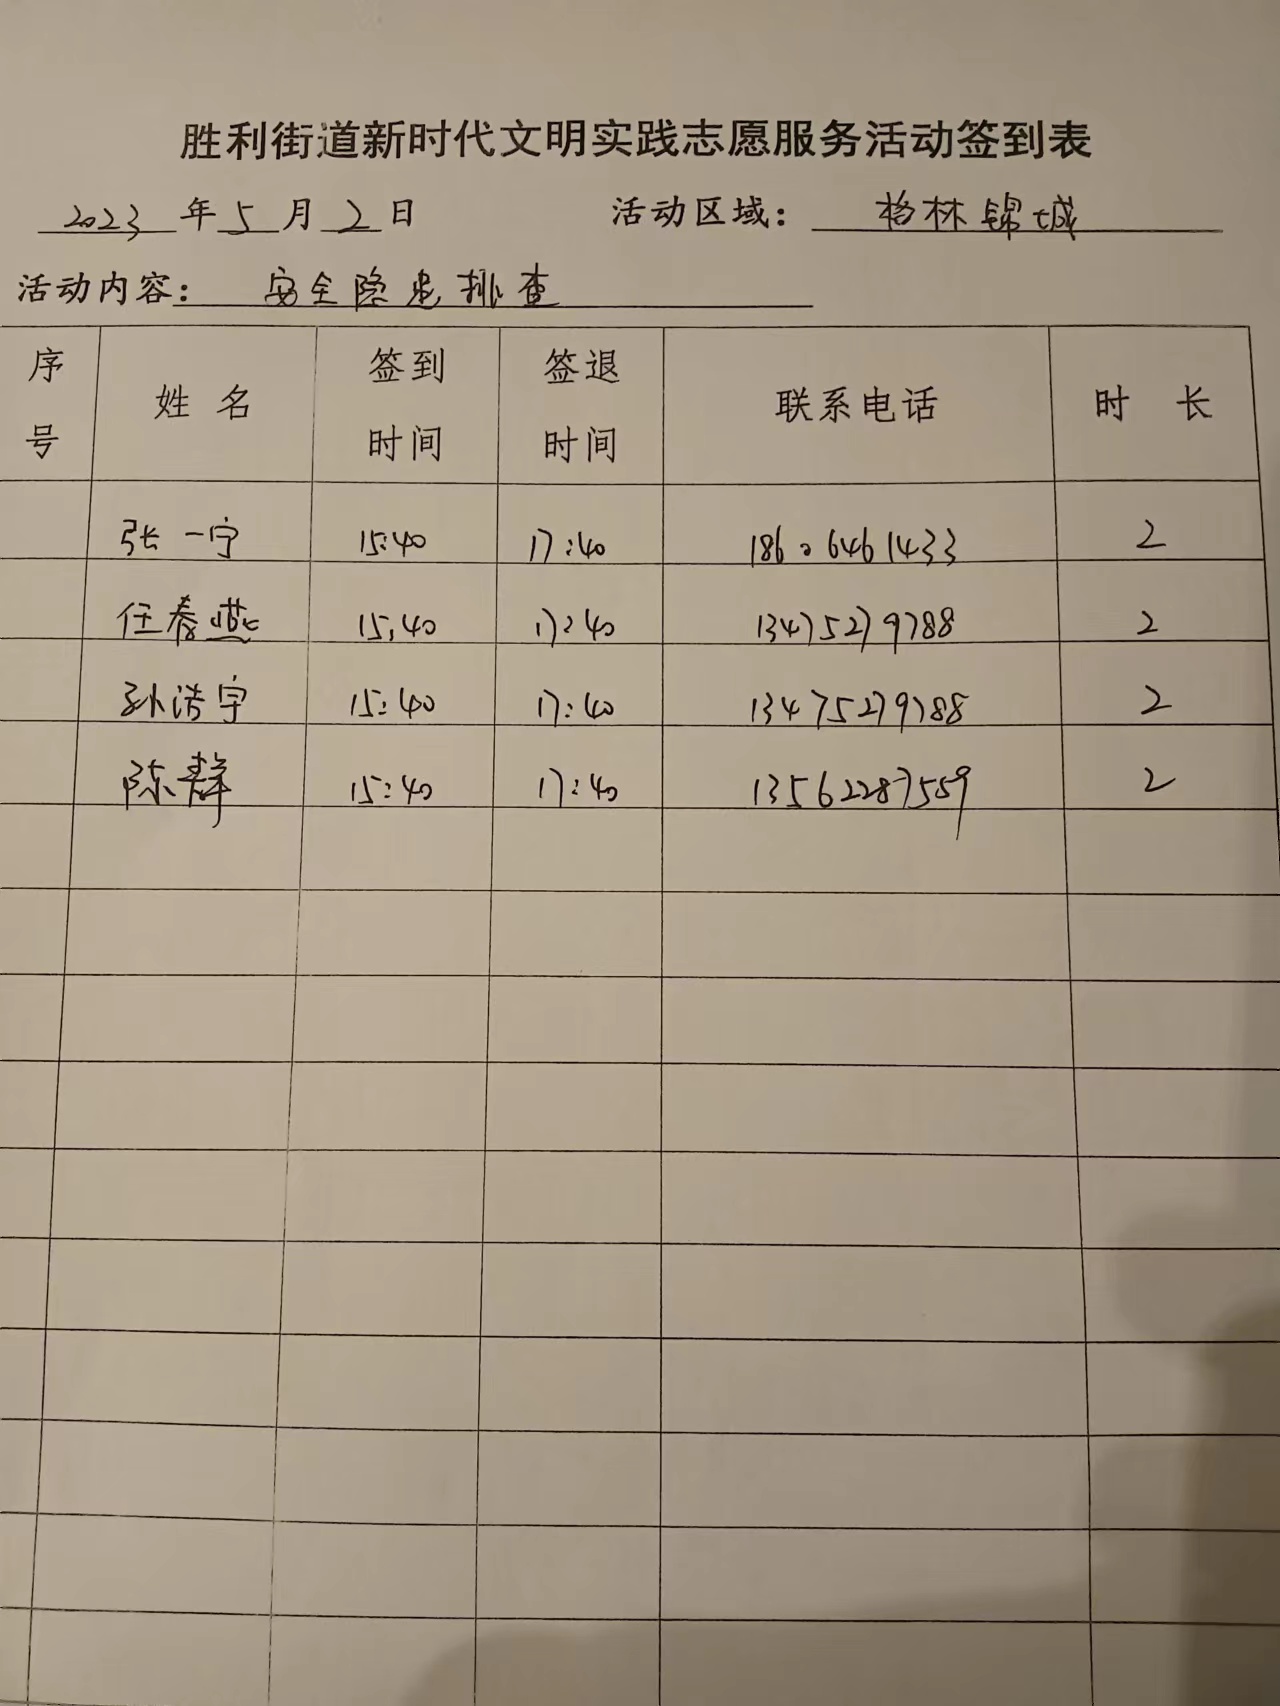 胜利街道新时代文明实践志愿服务活动签到表
2023年5月2日 活动区域：格林锦城
活动内容：安全隐患排查
序号 姓名 签到时间 签退时间 联系电话 时长
张一宁 15:40 17:40 18606461433 2
任春燕 15:40 17:40 13475279788 2
孙浩宇 15:40 17:40 13475279788 2
陈静 15:40 17:40 13562287559 2